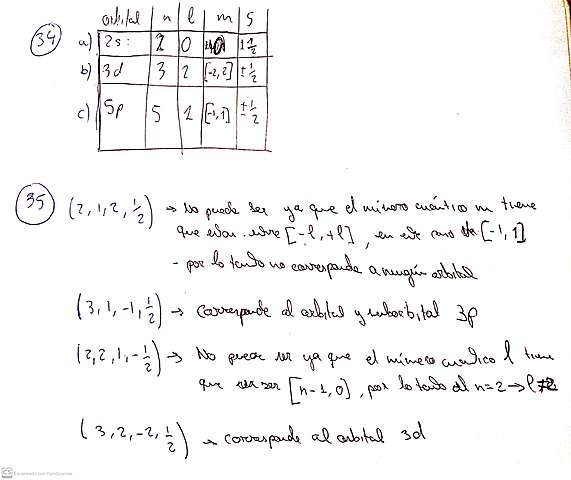 orbital n l m s
34 a) 2s: 2 0 0 ±1/2
b) 3d 3 2 [-2,2] ±1/2
c) 5p 5 1 [-1,1] ±1/2
35 (2,1,2,1/2) → No puede ser ya que el número cuántico m tiene
que estar entre [-l,+l], en este caso [-1,1]
- por lo tanto no corresponde a ningún orbital
(3,1,-1,1/2) → corresponde al orbital y suborbital 3p
(2,2,1,-1/2) → No puede ser ya que el número cuántico l tiene
que ser [n-1,0], por lo tanto n=2→l≠2
(3,2,-2,1/2) → corresponde al orbital 3d
CS Escaneado con CamScanner